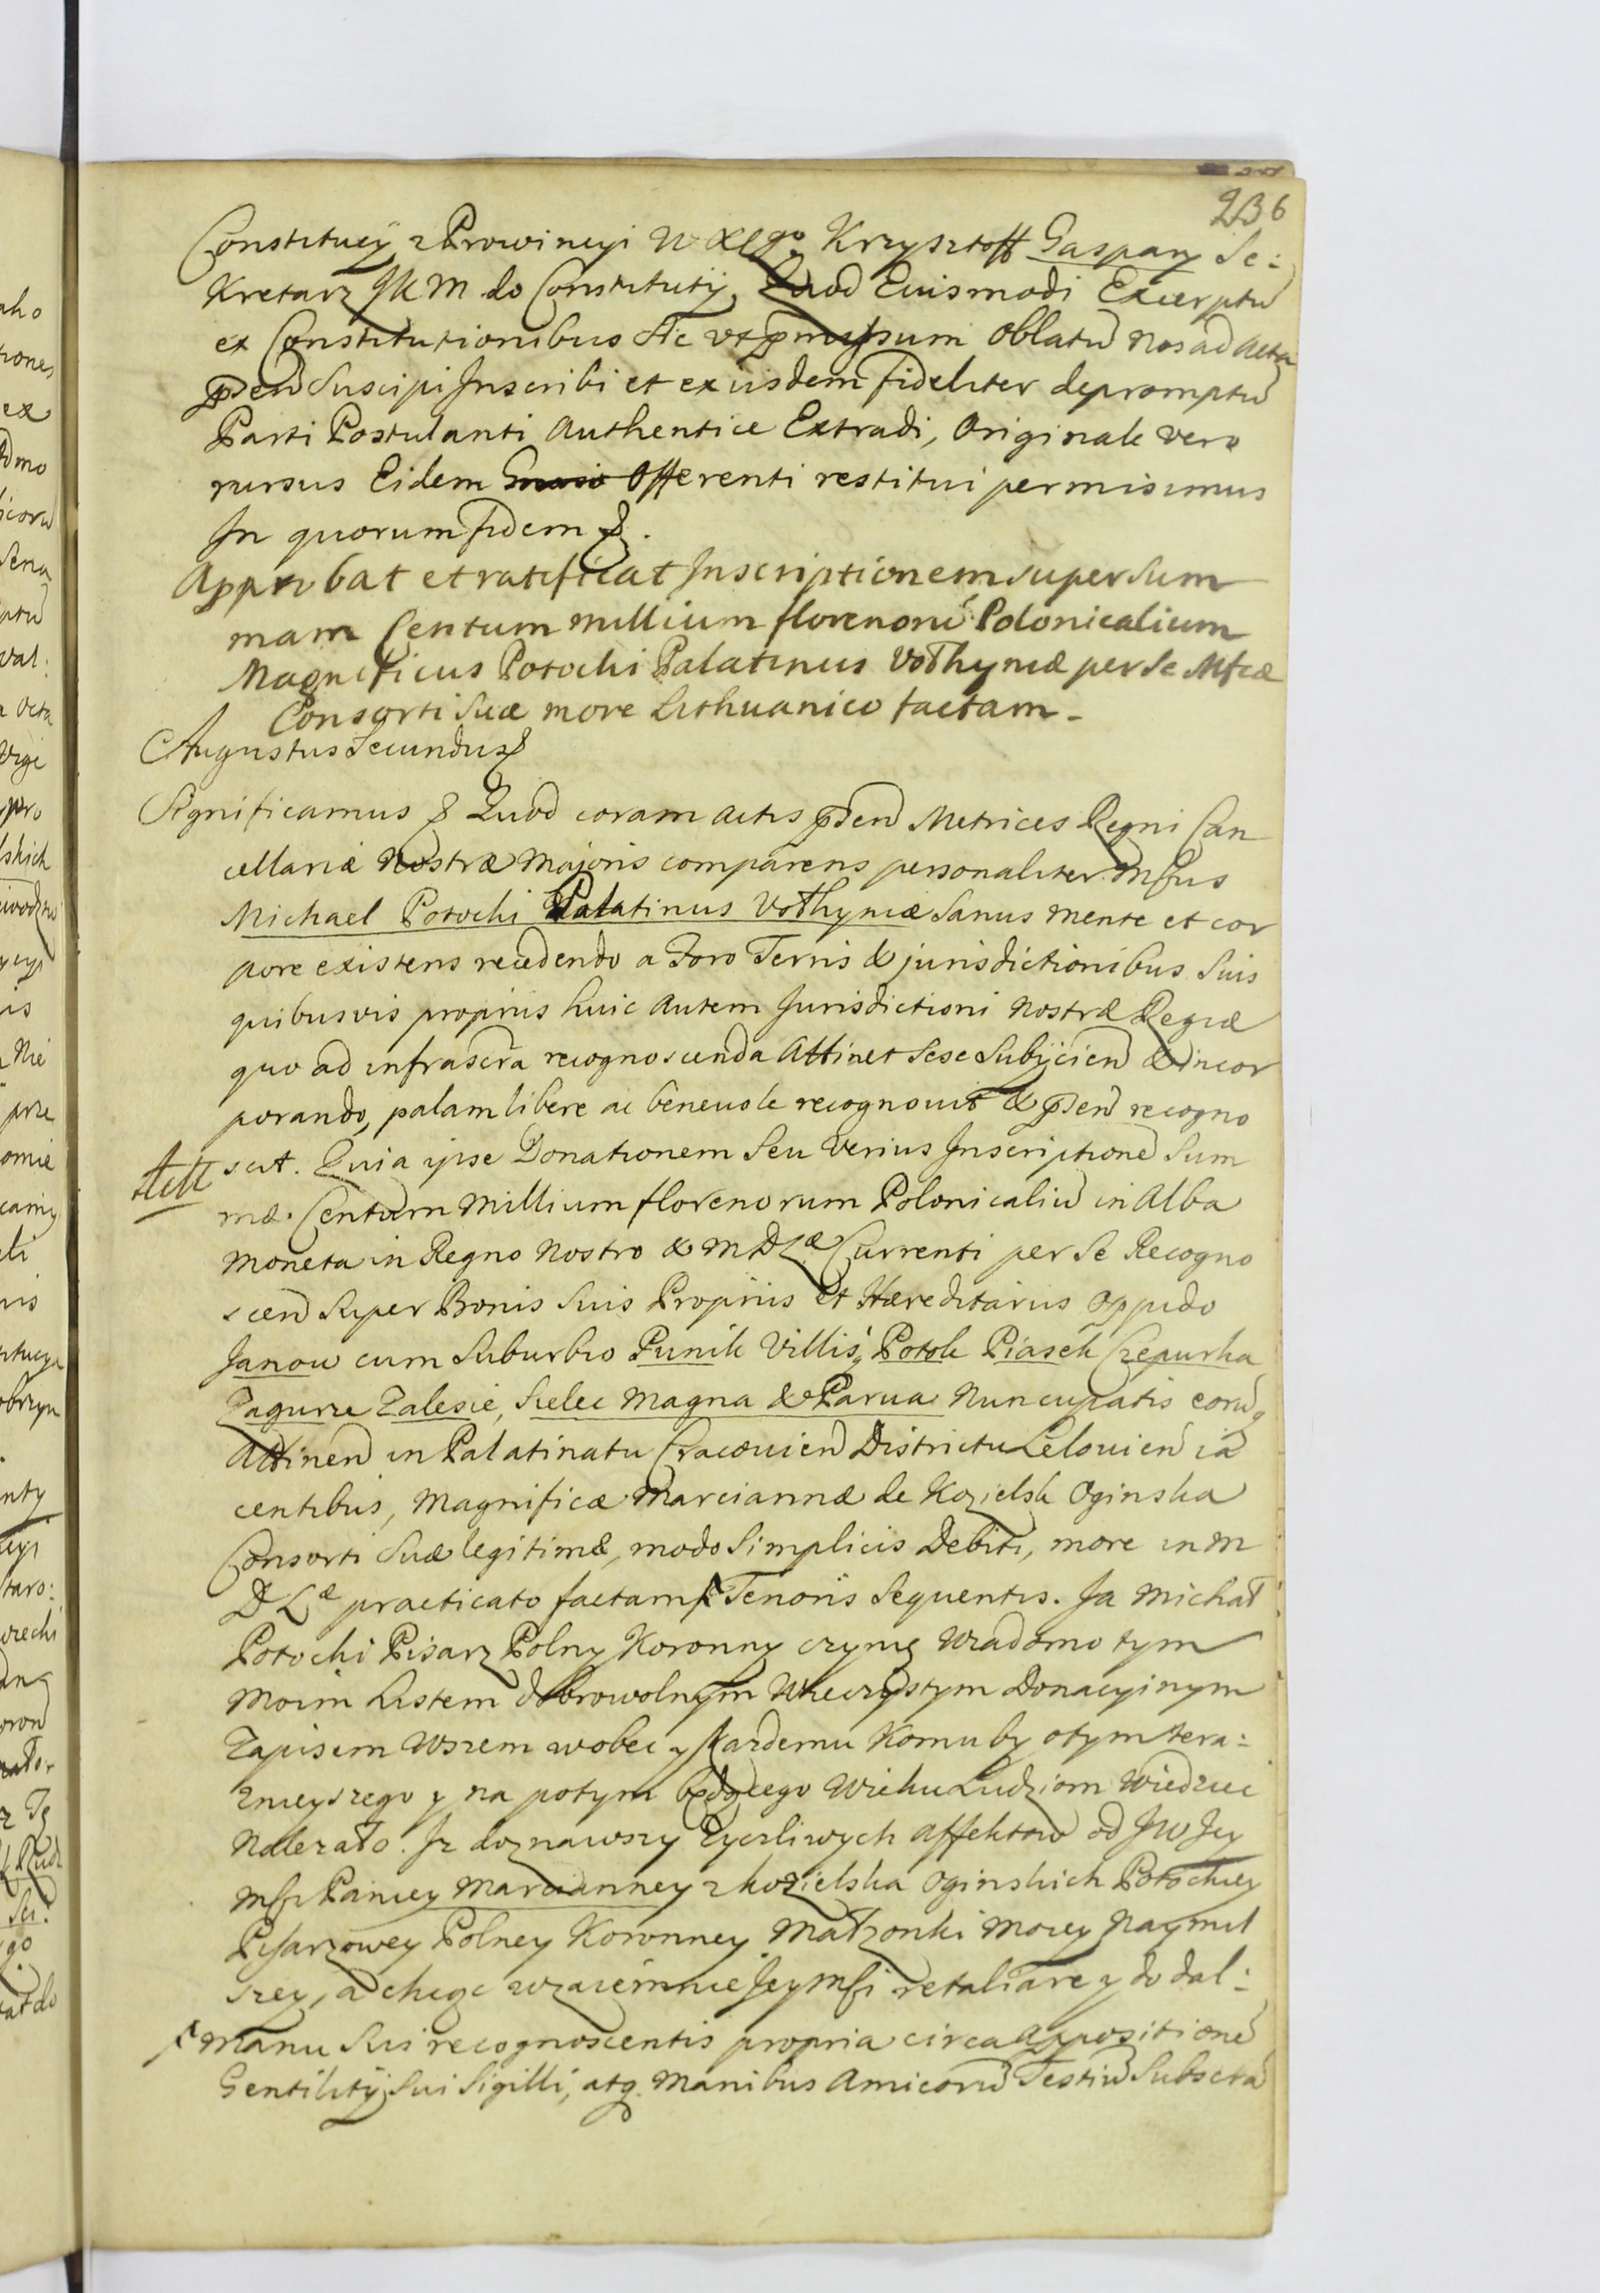 236
Constitucÿ z Prowincyi W Xgo Krzysztoff Gaspary Se:
Kretarz JKM do Constitutÿ, Quod Eiusmodi Excerptũ
ex Constitutionibus Sic vt pmissum Oblatũ nos ad Acta
psen Suscipi Inscribi et exiisdem fideliter depromptũ
Parti Postulanti Authentice Extradi, Originale vero
rursus Eidem Offerenti restitui permisimus
In quorum fidem &.
Approbat et ratificat Inscriptionem super Sum
mam Centum millium florenorũ Polonicalium
Magnificus Potocki Palatinus Vołhyniæ per Se Mfcæ
Consorti Suæ more Lithuanico factam.
Augustus Secundus &
Significamus & Quod coram Actis psen Metrices Regni Can
cellariæ Nostræ Majoris comparens personaliter Mfcus
Michael Potocki Palatinus Vołhyniæ Sanus mente et cor
pore existens recedendo a Foro Terris & jurisdictionibus Suis
quibusvis propriis huic autem Jurisdictioni Nostræ Regiæ
quo ad infrascra recognoscenda Attinet Sese Subÿcien & incor
porando, palam libere ac beneuole recognouit & psen recogno
scit. Quia ipse Donationem Seu Verius Inscriptionẽ Sum
mæ Centum Millium florenorum Polonicaliũ in Alba
Moneta in Regno Nostro & M D Læ Currenti per Se Recogno
scen Super Bonis Suis Propriis et Hæreditariis Oppido
Janow cum Suburbio Punik Villisq Potok Piasek Czepurka
Zagurze Zalesie, Sielec Magna & Parua Nuncupatis eorũq
Attinen in Palatinatu Cracouien Districtu Lelouien ia
centibus, Magnificæ Marciannæ de Kozielsk Oginska
Consorti Suæ legitimæ, modo Simplicis Debiti, more in M
D Læ practicato factam Tenoris Sequentis. Ja Michał
Potocki Pisarz Polny Koronny czynię Wiadomo tym
Moim Listem dobrowolnym Wieczystym Donacyinym
Zapisem Wszem wobec y Kazdemu Komu by o tym tera:
znieyszego y na potym będącego Wieku Ludziom Wiedziec
Nalezało. Iz doznawszy Zyczliwych Affektow od JW Jey
Mśi Paniey Marcianney z Kozielska Oginskich Potockiey
Pisarzowey Polney Koronney Małzonki Moiey Naymil
szey, a chcąc wzaiemnie Jeymśi retaliare y do dal:
Manu Sui recognoscentis propria circa Appositionẽ
Gentilitÿ Sui Sigilli, atq Manibus Amicorũ Testiũ Subscta